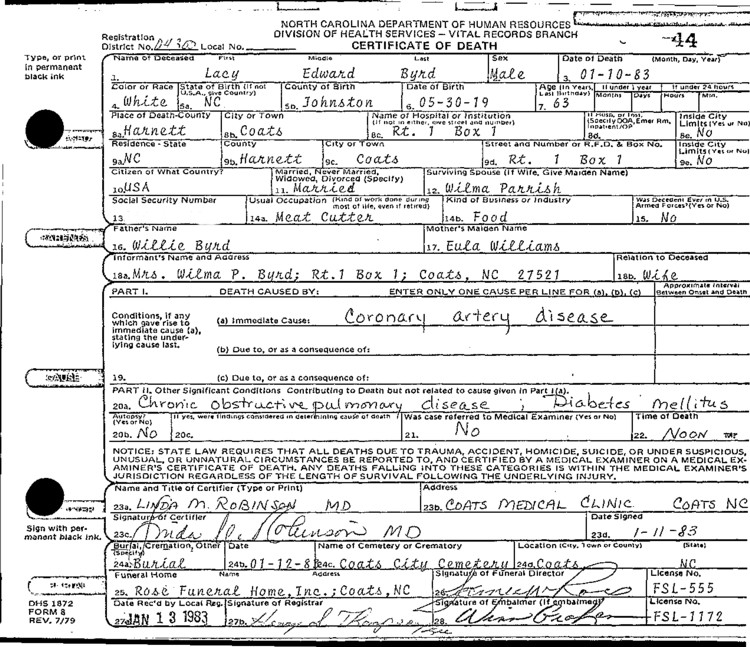 NORTH CAROLINA DEPARTMENT OF HUMAN RESOURCES
DIVISION OF HEALTH SERVICES – VITAL RECORDS BRANCH
CERTIFICATE OF DEATH
44
Registration
District No. Local No.
Type, or print
in permanent
black ink
Name of Deceased First Middle Last Sex Date of Death (Month, Day, Year)
1. Lacy Edward Byrd 2. Male 3. 01-10-83
Color or Race State of Birth (If not U.S.A., give Country) County of Birth Date of Birth Age (In Years, Last Birthday) If under 1 year If under 24 hours
Months Days Hours Min.
4. White 5a. NC 5b. Johnston 6. 05-30-19 7. 63
Place of Death-County City or Town Name of Hospital or Institution (If not in either, give street and number) If Hosp. or Inst. (Specify DOA, Emer Rm, Inpatient/OP Inside City Limits (Yes or No)
8a. Harnett 8b. Coats 8c. Rt. 1 Box 1 8d. 8e. No
Residence - State County City or Town Street and Number or R.F.D. & Box No. Inside City Limits (Yes or No)
9a. NC 9b. Harnett 9c. Coats 9d. Rt. 1 Box 1 9e. No
Citizen of What Country? Married, Never Married, Widowed, Divorced (Specify) Surviving Spouse (If Wife, Give Maiden Name)
10. USA 11. Married 12. Wilma Parrish
Social Security Number Usual Occupation (Kind of work done during most of life, even if retired) Kind of Business or Industry Was Decedent Ever in U.S. Armed Forces? (Yes or No)
13. 14a. Meat Cutter 14b. Food 15. No
PARENTS
Father's Name Mother's Maiden Name
16. Willie Byrd 17. Eula Williams
Informant's Name and Address Relation to Deceased
18a. Mrs. Wilma P. Byrd; Rt.1 Box 1; Coats, NC 27521 18b. Wife
PART I. DEATH CAUSED BY: ENTER ONLY ONE CAUSE PER LINE FOR (a), (b), (c) Approximate Interval Between Onset and Death
Conditions, if any
which gave rise to
immediate cause (a),
stating the under-
lying cause last.
(a) Immediate Cause: Coronary artery disease
(b) Due to, or as a consequence of:
CAUSE
19. (c) Due to, or as a consequence of:
PART II. Other Significant Conditions Contributing to Death but not related to cause given in Part I(A).
20a. Chronic obstructive pulmonary disease ; Diabetes mellitus
Autopsy? (Yes or No) If yes, were findings considered in determining cause of death Was case referred to Medical Examiner (Yes or No) Time of Death
20b. No 20c. 21. No 22. NOON
NOTICE: STATE LAW REQUIRES THAT ALL DEATHS DUE TO TRAUMA, ACCIDENT, HOMICIDE, SUICIDE, OR UNDER SUSPICIOUS,
UNUSUAL, OR UNNATURAL CIRCUMSTANCES BE REPORTED TO, AND CERTIFIED BY A MEDICAL EXAMINER ON A MEDICAL EX-
AMINER'S CERTIFICATE OF DEATH. ANY DEATHS FALLING INTO THESE CATEGORIES IS WITHIN THE MEDICAL EXAMINER'S
JURISDICTION REGARDLESS OF THE LENGTH OF SURVIVAL FOLLOWING THE UNDERLYING INJURY.
Name and Title of Certifier (Type or Print) Address
23a. LINDA M. ROBINSON MD 23b. COATS MEDICAL CLINIC COATS NC
Sign with per-
manent black ink.
Signature of Certifier Date Signed
23c. Linda M. Robinson MD 23d. 1-11-83
Burial, Cremation, Other (Specify) Date Name of Cemetery or Crematory Location (City, Town or County) (State)
24a. Burial 24b. 01-12-8 24c. Coats City Cemetery 24d. Coats, NC
Funeral Home Name Address Signature of Funeral Director License No.
25. Rose Funeral Home, Inc.; Coats, NC 26. FSL-555
DHS 1872
FORM 8
REV. 7/79
Date Rec'd by Local Reg. Signature of Registrar Signature of Embalmer (If embalmed) License No.
27a. JAN 13 1983 27b. 28. FSL-1172